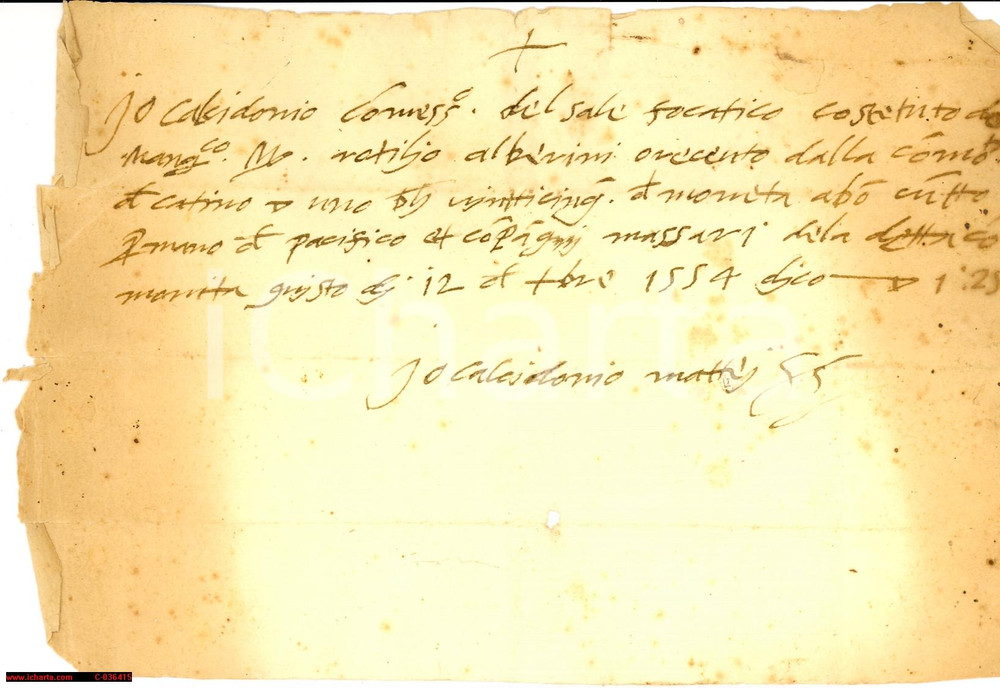 +
Jo Calcidonio Comess.o del sale focatico costetuto de
Mang.co M. rotilio alberini o recento dalla com.
d catino uno vinticinq. d moneta a bo cuto
P mano d pacifico et compagnij massari dela detta co
monita quisto dj 12 d xbre 1554 djco 1:25
Jo Calcidonio mattej
iCharta
www.icharta.com C-036415